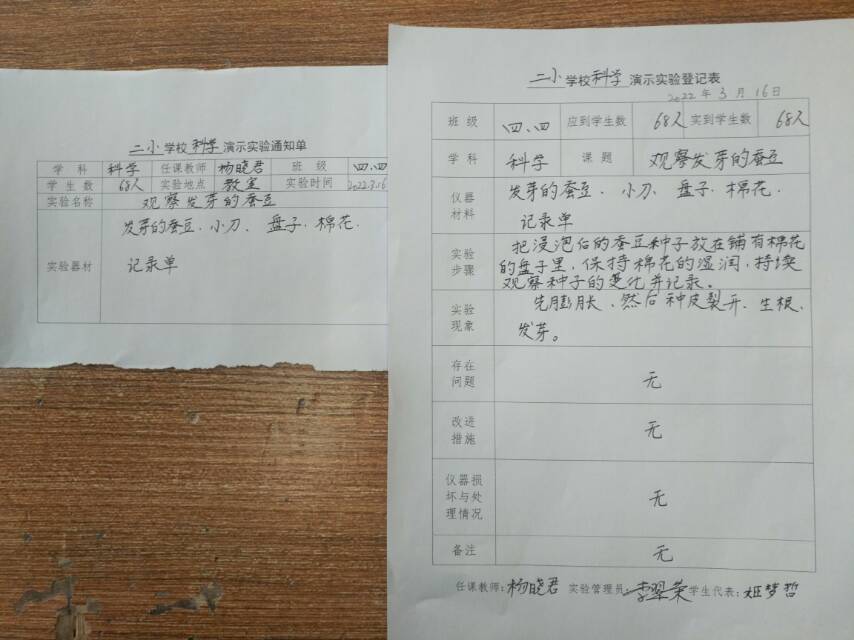 二小学校科学演示实验通知单
学科 科学 任课教师 杨晓君 班级 四.四
学生数 68人 实验地点 教室 实验时间 2022.3.16
实验名称 观察发芽的蚕豆
发芽的蚕豆、小刀、盘子、棉花、
实验器材 记录单
二小学校科学演示实验登记表
2022年3月16日
班级 四.四 应到学生数 68人 实到学生数 68人
学科 科学 课题 观察发芽的蚕豆
仪器材料 发芽的蚕豆、小刀、盘子、棉花、
记录单
实验步骤 把浸泡后的蚕豆种子放在铺有棉花
的盘子里,保持棉花的湿润,持续
观察种子的变化并记录。
实验现象 先膨胀、然后种皮裂开、生根、
发芽。
存在问题 无
改进措施 无
仪器损坏与处理情况 无
备注 无
任课教师:杨晓君 实验管理员:李翠荣 学生代表:姬梦哲